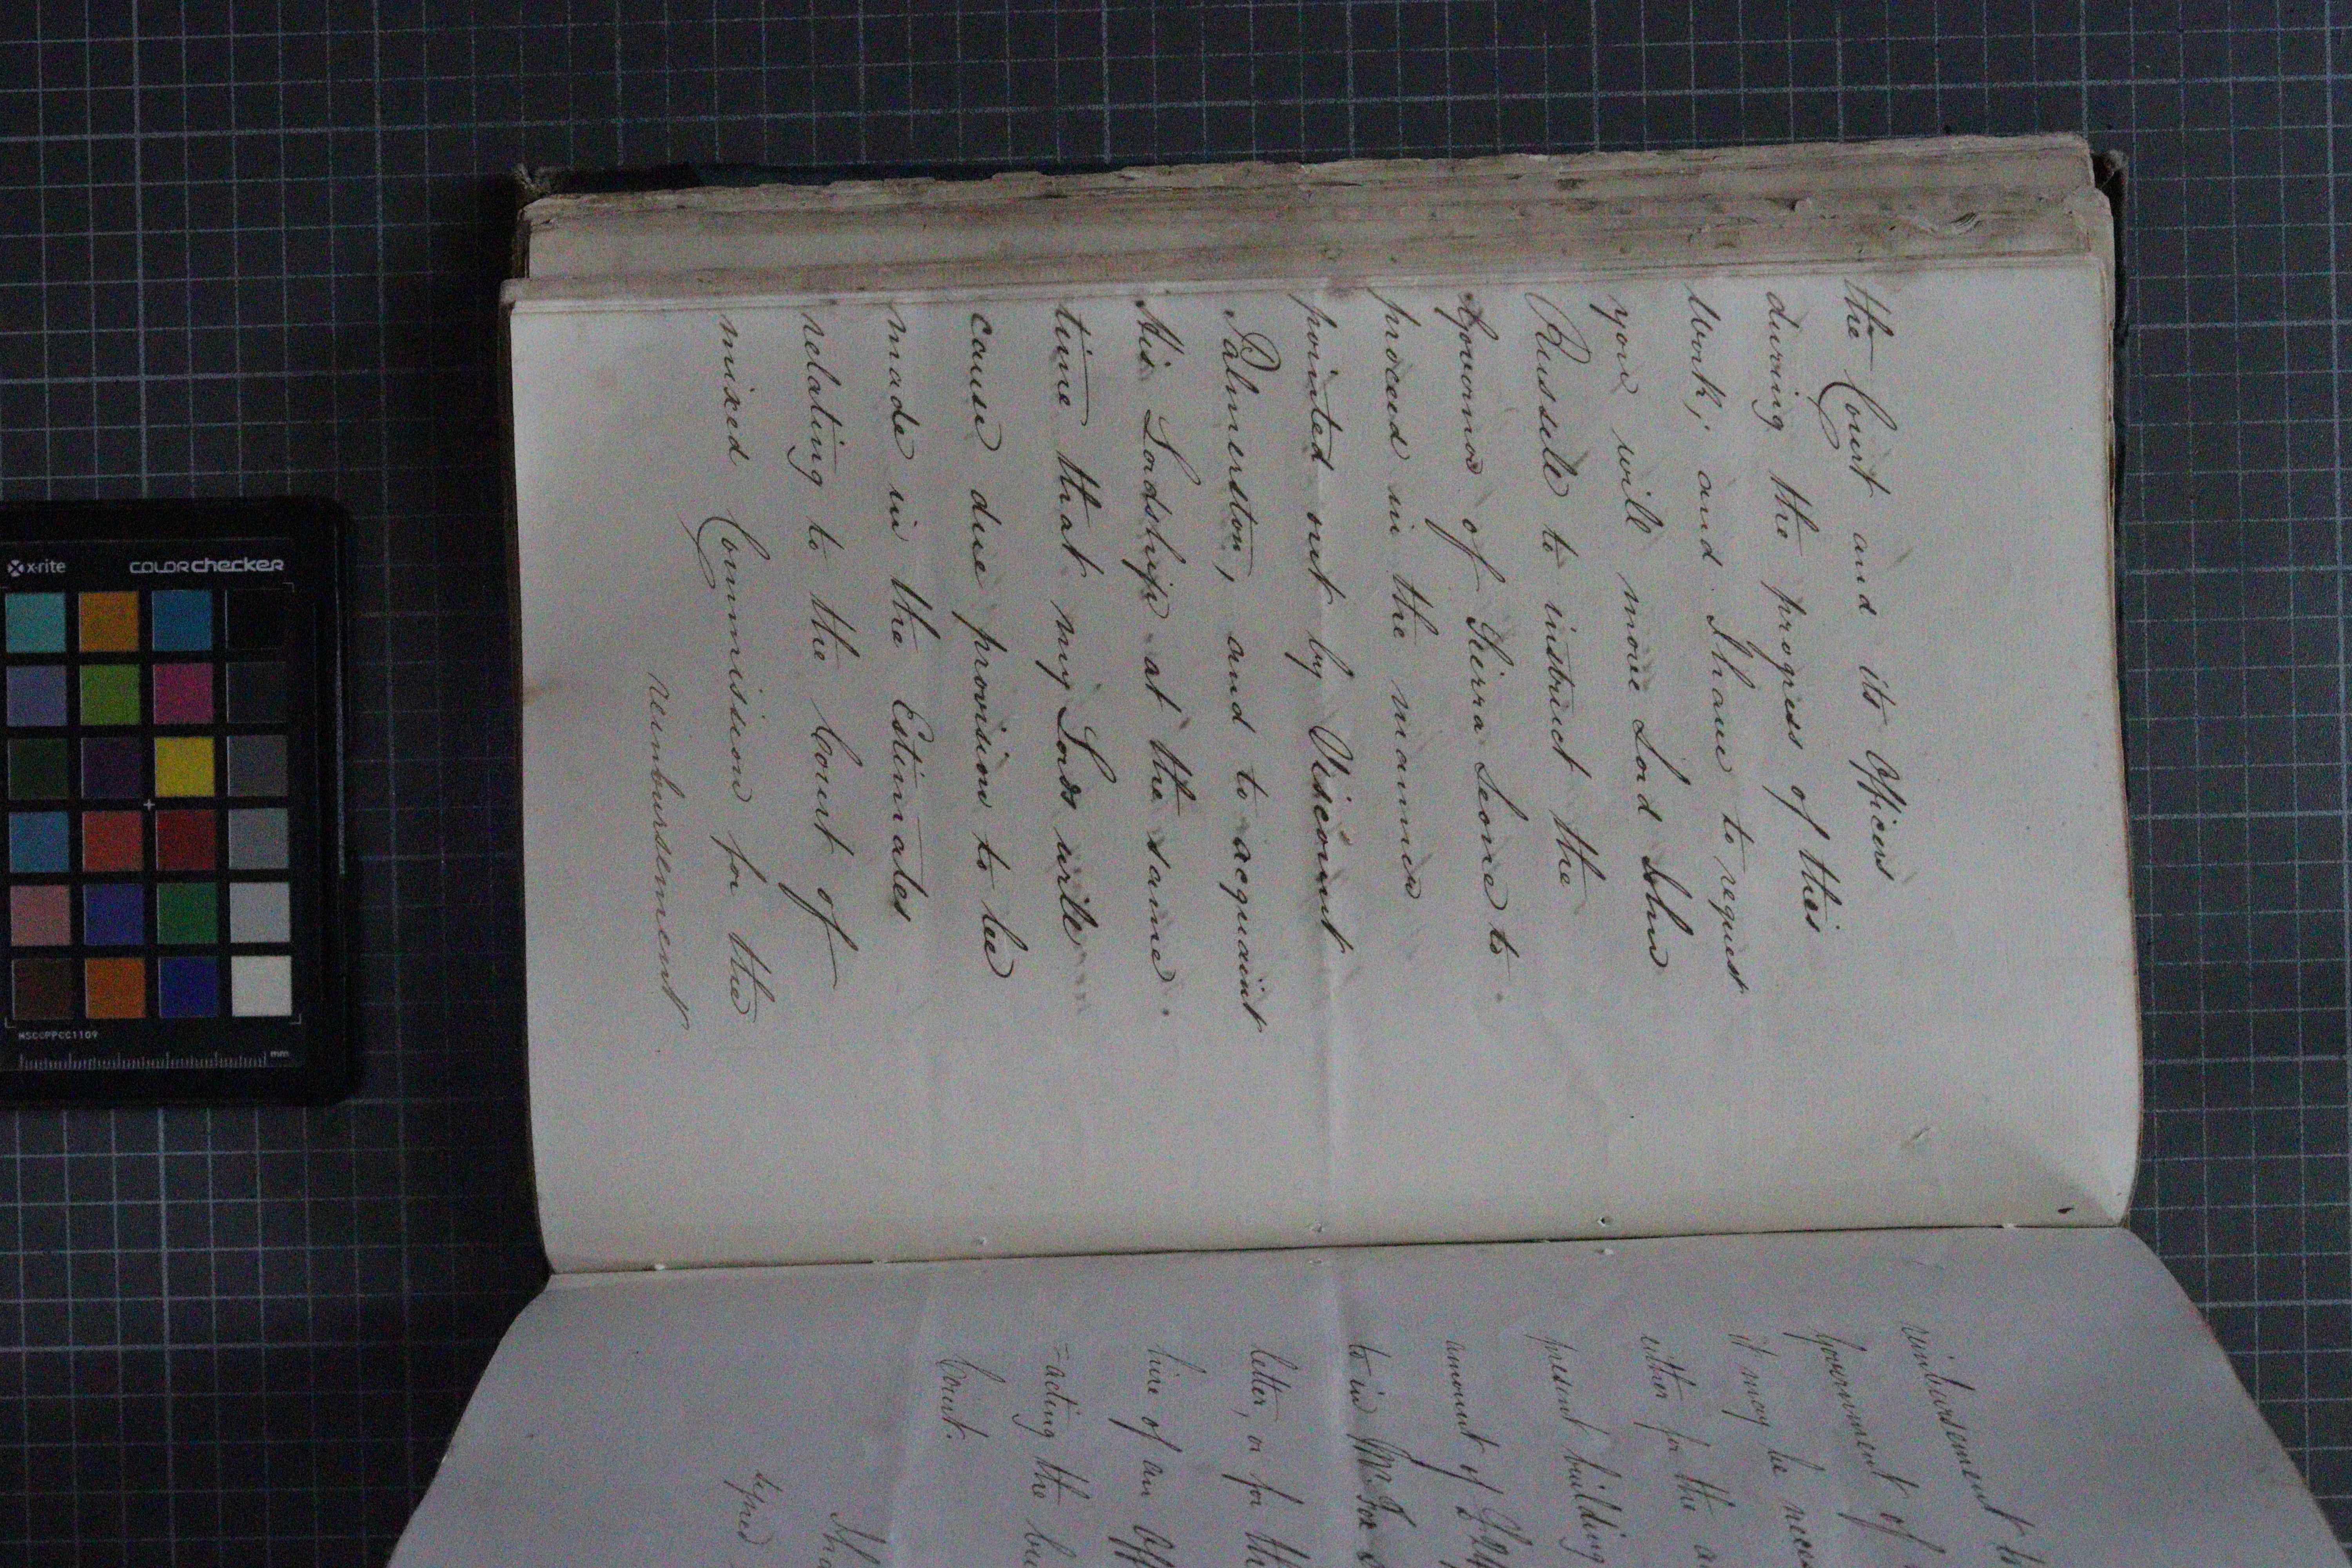 the Court and its Officers
during the progress of this
work; and I have to request
you will move Lord John
Russell to instruct the
Governor of Sierra Leone to
proceed in the manner
pointed out by Viscount
Palmerston, and to acquaint
His Lordship at the same
time that my Lords will
cause due provision to be
made in the Estimates
relating to the Court of
mixed Commission for the
reimbursement
reimbursement
Government of
it may be
either for the
present building
amount of
to in Mr
letter, or for
hire of an
=acting the
Court.
I
signed
x-rite COLORchecker
MSCCPPCC1109
mm